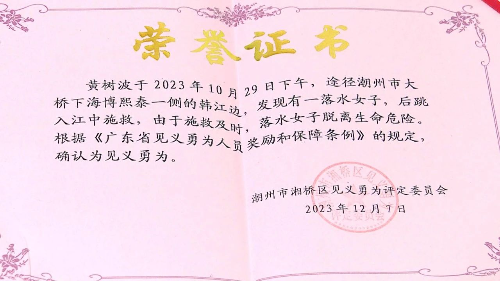 荣誉证书
黄树波于2023年10月29日下午，途径潮州市大
桥下海博熙泰一侧的韩江边，发现有一落水女子，后跳
入江中施救，由于施救及时，落水女子脱离生命危险。
根据《广东省见义勇为人员奖励和保障条例》的规定，
确认为见义勇为。
潮州市湘桥区见义勇为评定委员会
2023年12月7日